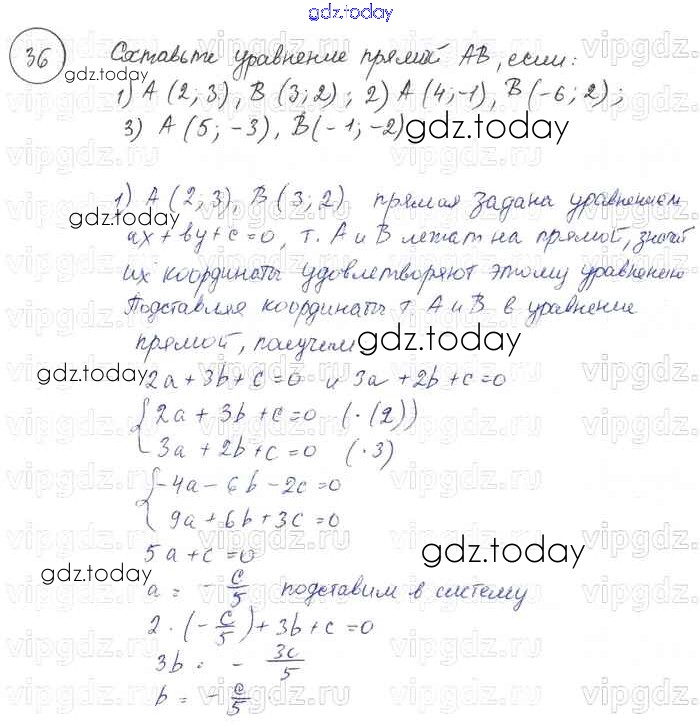 gdz.today
36 Составьте уравнение прямой АВ, если:
1) А (2; 3), В (3; 2); 2) А (4; -1), В (-6; 2);
3) А (5; -3), В (-1; -2)
gdz.today
gdz.today
1) А (2; 3), В (3; 2) прямая задана уравнением
gdz.today
ax + by + c = 0, т. А и В лежат на прямой, значит
их координаты удовлетворяют этому уравнению
Подставляя координаты т А и В в уравнение
прямой, получим
gdz.today
gdz.today
2a + 3b + c = 0 и 3a + 2b + c = 0
2a + 3b + c = 0 (·(2))
3a + 2b + c = 0 (·3)
-4a - 6b - 2c = 0
9a + 6b + 3c = 0
gdz.today
5a + c = 0
gdz.today
a = - c/5 подставим в систему
2 · (- c/5) + 3b + c = 0
3b = - 3c/5
b = - c/5
gdz.today
vipgdz.ru